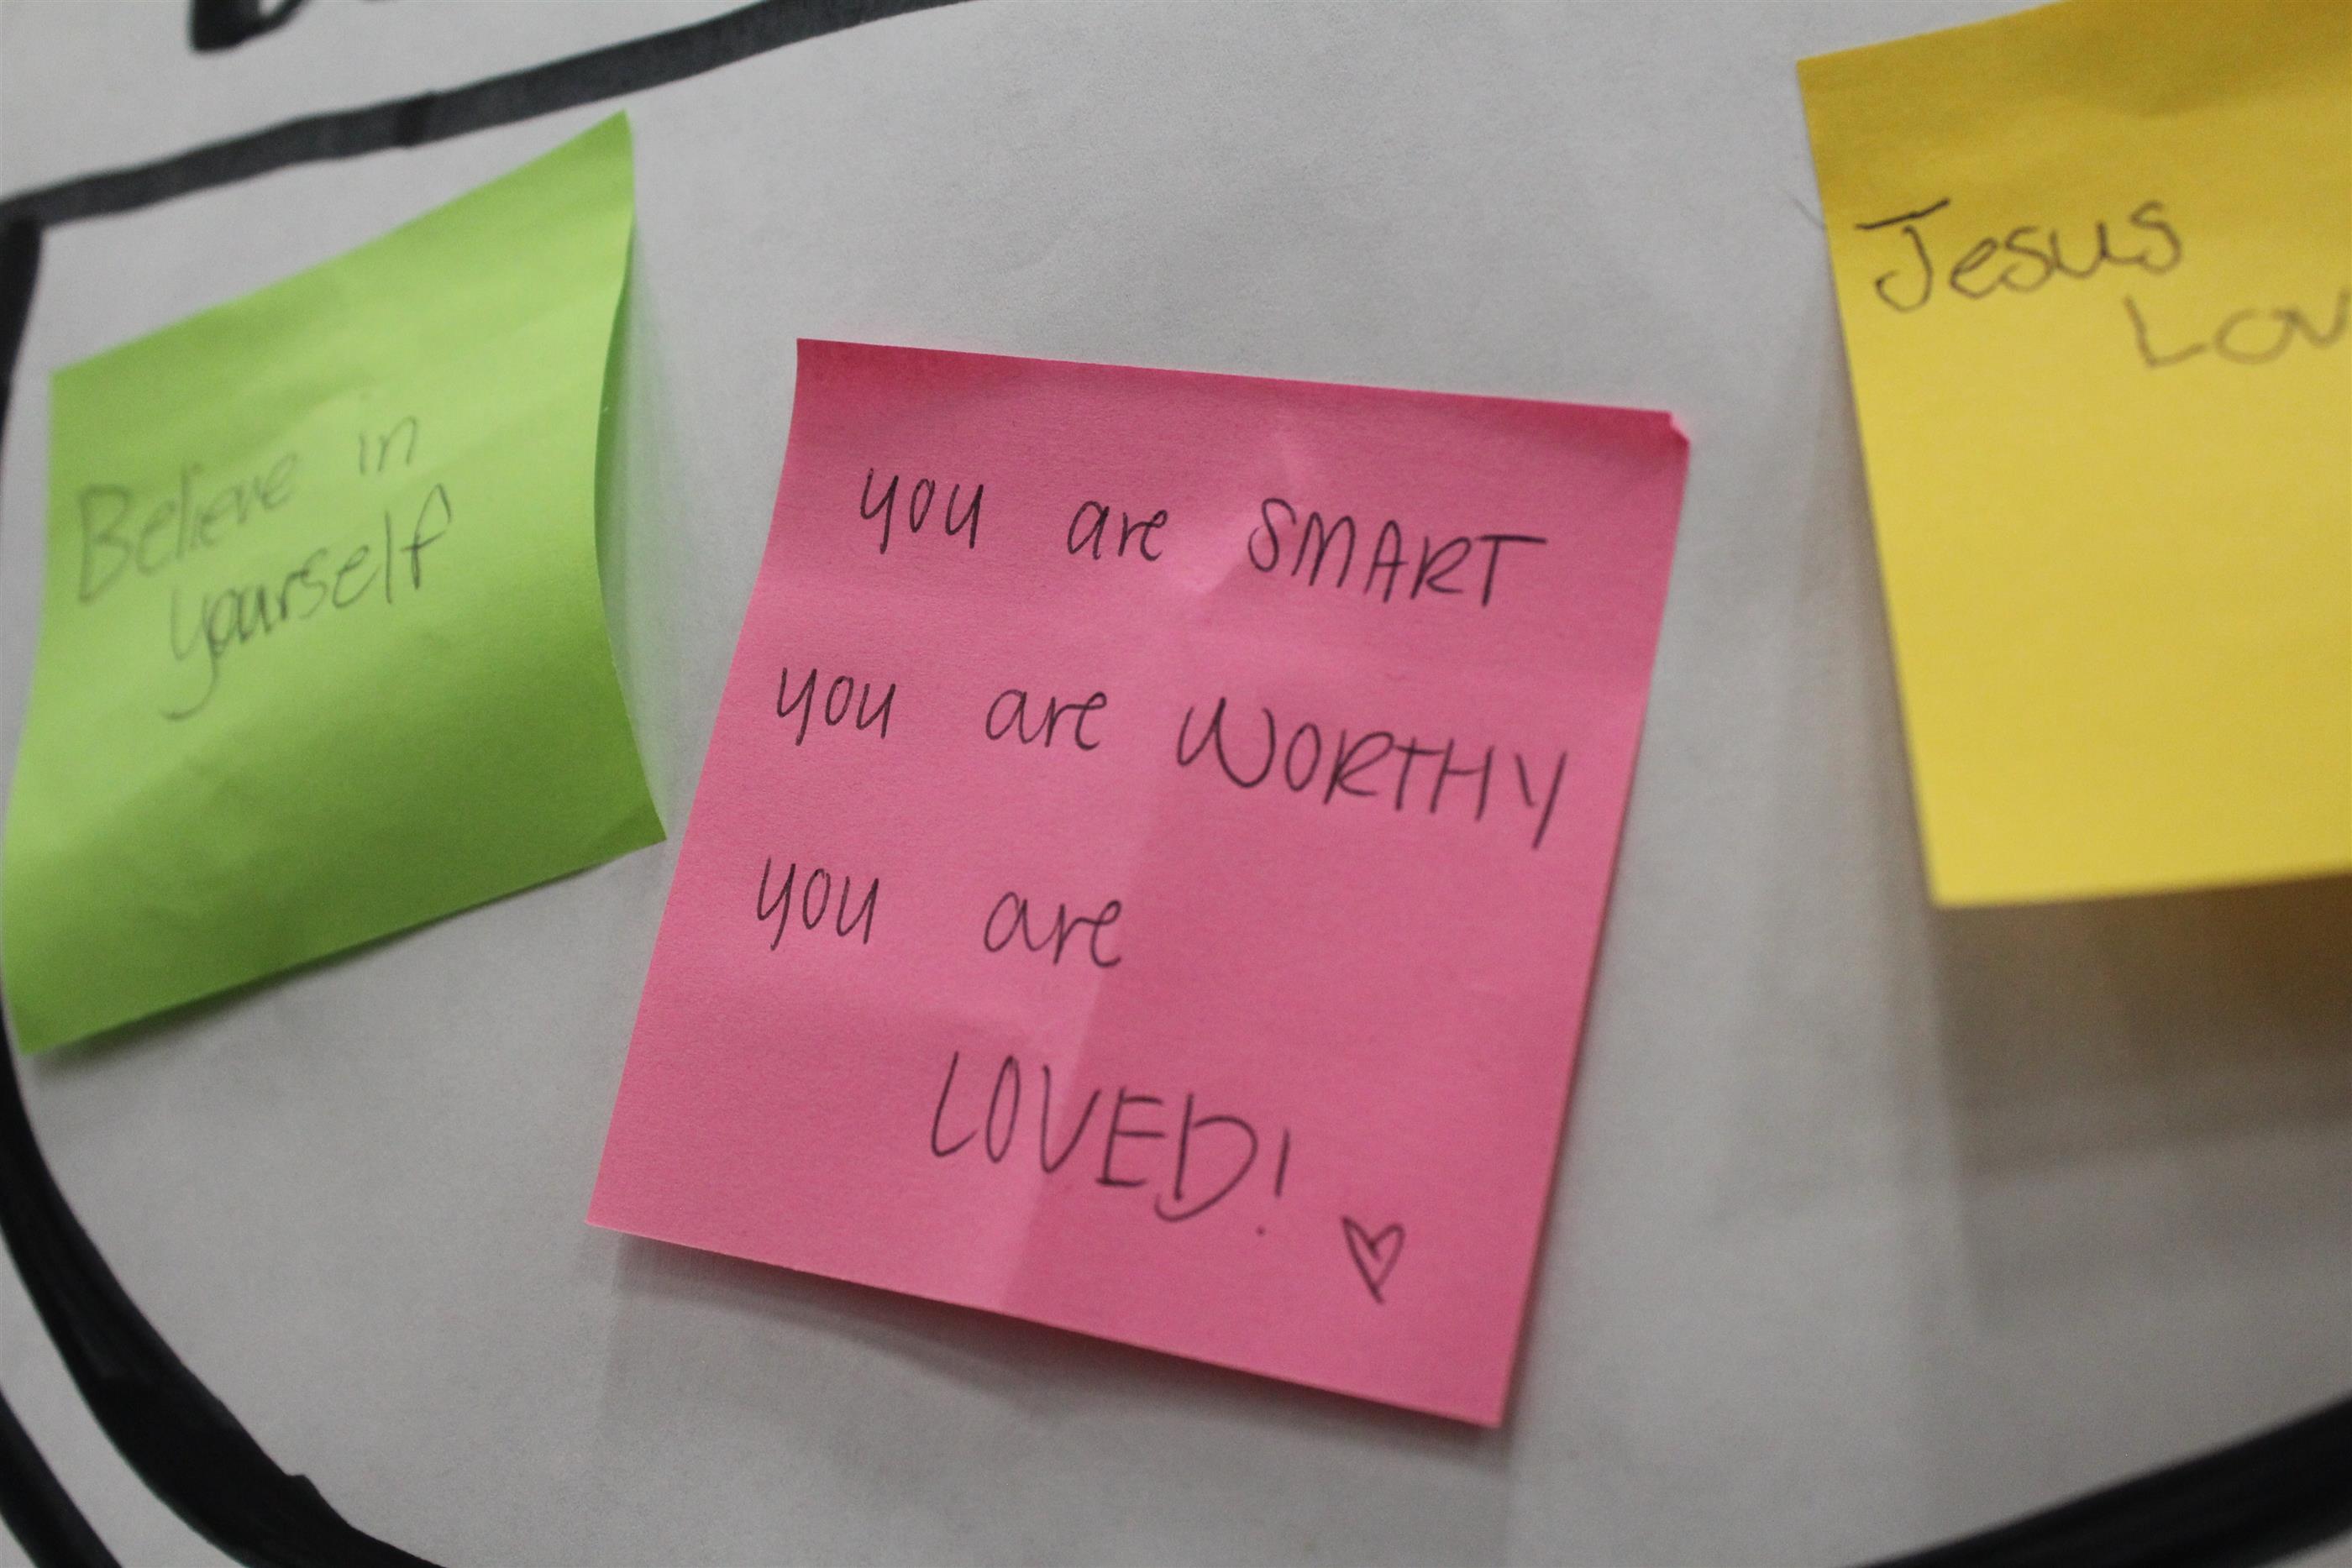 Believe in
yourself
you are SMART
you are WORTHY
you are
LOVED!
Jesus